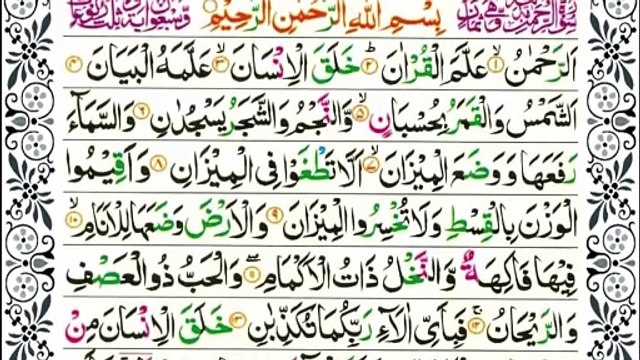 بِسْمِ اللهِ الرَّحْمٰنِ الرَّحِيْمِ
اَلرَّحْمٰنُ ۙ۱ عَلَّمَ الْقُرْاٰنَ ؕ۲ خَلَقَ الْاِنْسَانَ ۙ۳ عَلَّمَهُ الْبَيَانَ ۴
اَلشَّمْسُ وَالْقَمَرُ بِحُسْبَانٍ ۪۵ وَّالنَّجْمُ وَالشَّجَرُ يَسْجُدٰنِ ۶ وَالسَّمَآءَ
رَفَعَهَا وَوَضَعَ الْمِيْزَانَ ۙ۷ اَلَّا تَطْغَوْا فِى الْمِيْزَانِ ۸ وَاَقِيْمُوا
الْوَزْنَ بِالْقِسْطِ وَلَا تُخْسِرُوا الْمِيْزَانَ ۹ وَالْاَرْضَ وَضَعَهَا لِلْاَنَامِ ۙ۱۰
فِيْهَا فَاكِهَةٌ وَّالنَّخْلُ ذَاتُ الْاَكْمَامِ ۖ۱۱ وَالْحَبُّ ذُو الْعَصْفِ
وَالرَّيْحَانُ ۚ۱۲ فَبِاَىِّ اٰلَآءِ رَبِّكُمَا تُكَذِّبٰنِ ۱۳ خَلَقَ الْاِنْسَانَ مِنْ